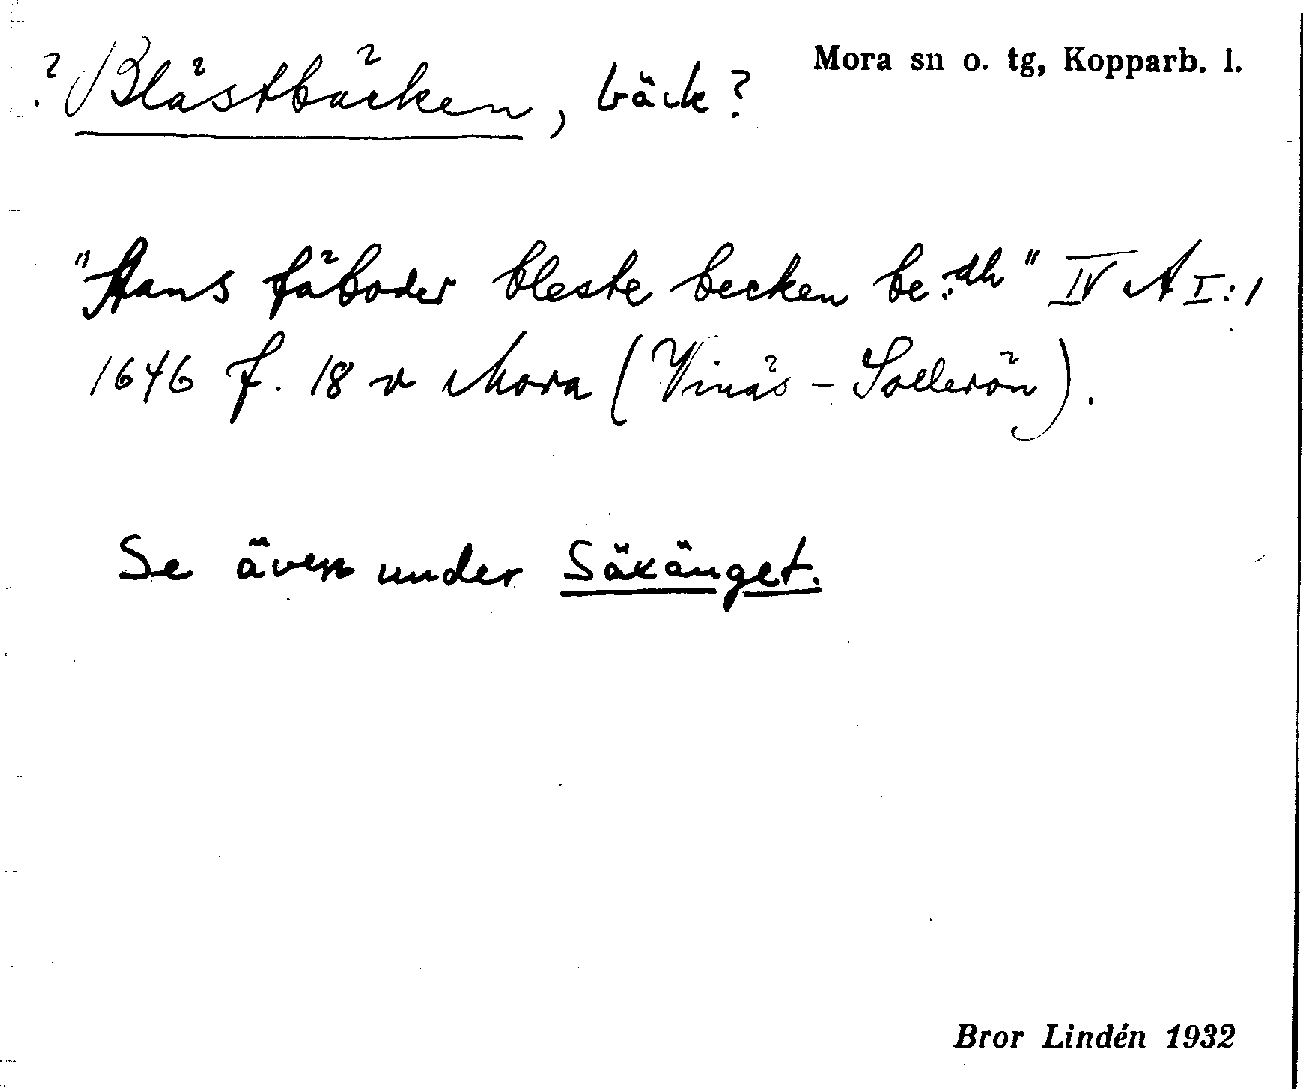 ? Blästbäcken, bäck?
Mora sn o. tg, Kopparb. l.
"Hans fäboder bleste becken be:dh" IV A I:1
1646 f. 18 v Mora (Vinäs - Sollerön).
Se även under Säxänget.
Bror Lindén 1932